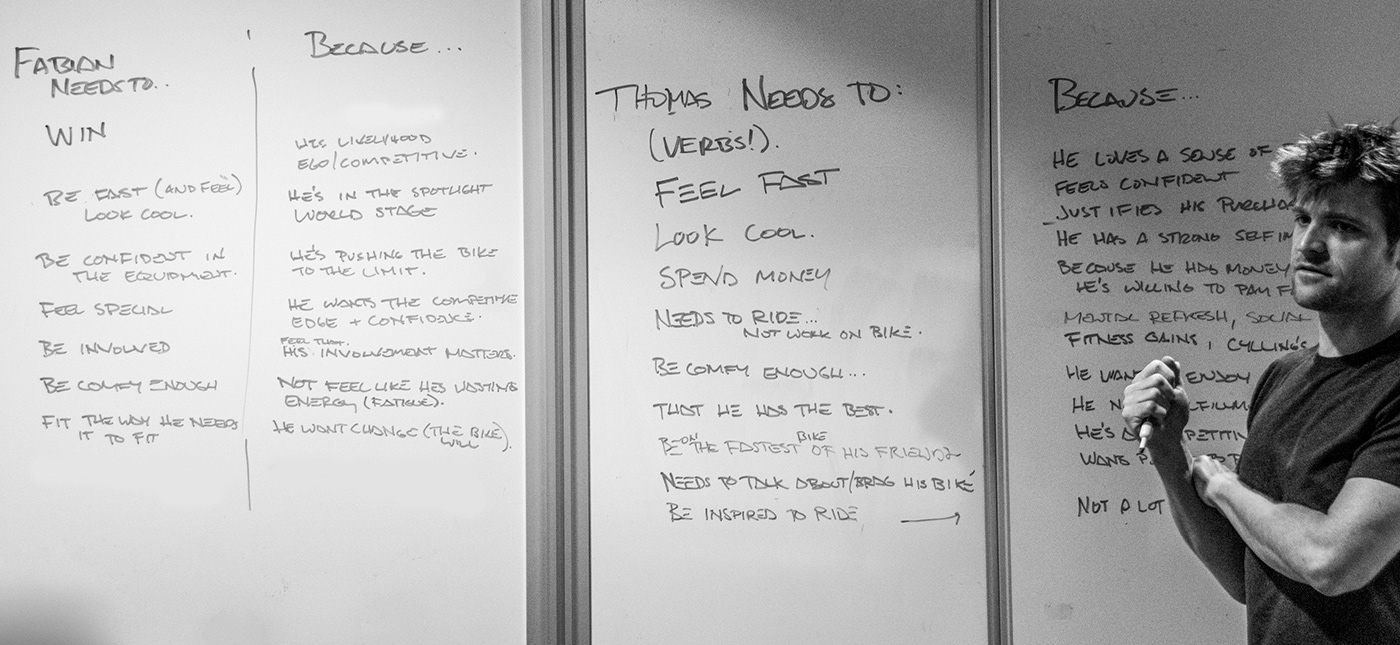 FABIAN
NEEDS TO..
WIN
BE FAST (AND FEEL)
LOOK COOL.
BE CONFIDENT IN
THE EQUIPMENT.
FEEL SPECIAL
BE INVOLVED
BE COMFY ENOUGH
FIT THE WAY HE NEEDS
IT TO FIT
BECAUSE...
HIS LIVELYHOOD
EGO/COMPETITIVE.
HE'S IN THE SPOTLIGHT
WORLD STAGE
HE'S PUSHING THE BIKE
TO THE LIMIT.
HE WANTS THE COMPETITIVE
EDGE + CONFIDENCE.
FEEL THAT
HIS INVOLVEMENT MATTERS.
NOT FEEL LIKE HES WASTING
ENERGY (FATIGUE).
HE WONT CHANGE (THE BIKE)
WILL).
THOMAS NEEDS TO:
(VERBS!).
FEEL FAST
LOOK COOL.
SPEND MONEY
NEEDS TO RIDE...
NOT WORK ON BIKE.
BE COMFY ENOUGH...
THAT HE HAS THE BEST.
BE ON THE FASTEST BIKE OF HIS FRIENDS
NEEDS TO TALK ABOUT/BRAG HIS BIKE
BE INSPIRED TO RIDE
BECAUSE...
HE LOVES A SENSE OF
FEELS CONFIDENT
JUSTIFIES HIS PURCHAS
HE HAS A STRONG SELF IM
BECAUSE HE HAS MONEY
HE'S WILLING TO PAY F
MENTAL REFRESH, SOCIAL
FITNESS GAINS, CYCLING'S
HE WAN ENJOY
HE N LFILLM
HE'S PETITIV
WANTS
NOT A LOT